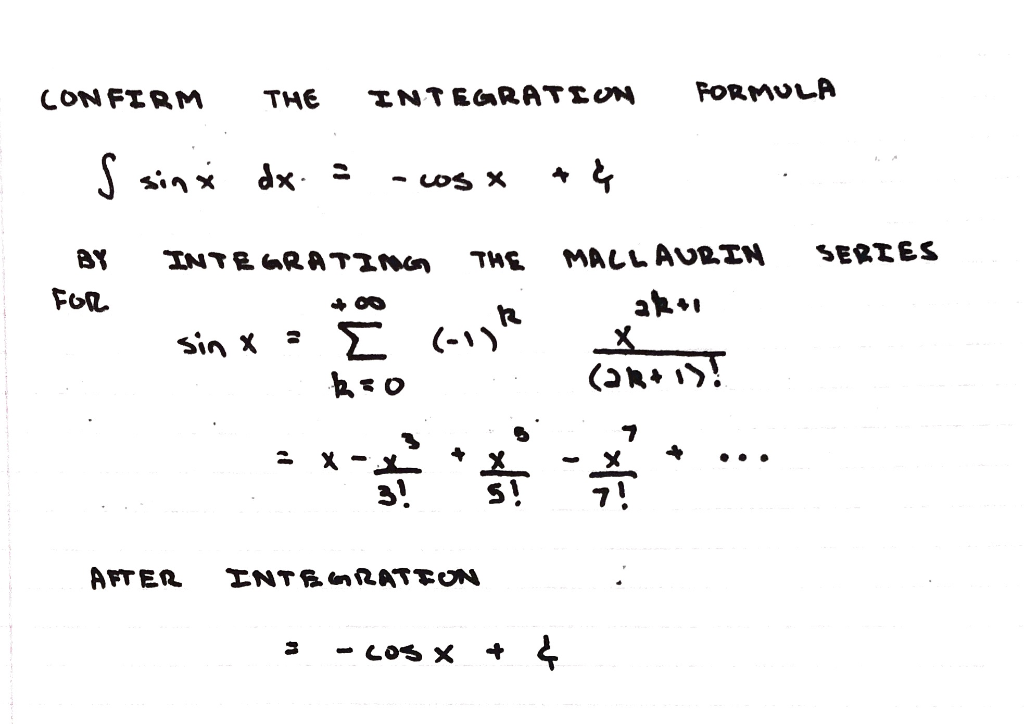 CONFIRM THE INTEGRATION FORMULA
∫ sin x dx = - cos x + C
BY INTEGRATING THE MACLAURIN SERIES
FOR
sin x = +∞ Σ k=0 (-1)^k x^(2k+1) / (2k+1)!
= x - x^3/3! + x^5/5! - x^7/7! + ...
AFTER INTEGRATION
= - cos x + C